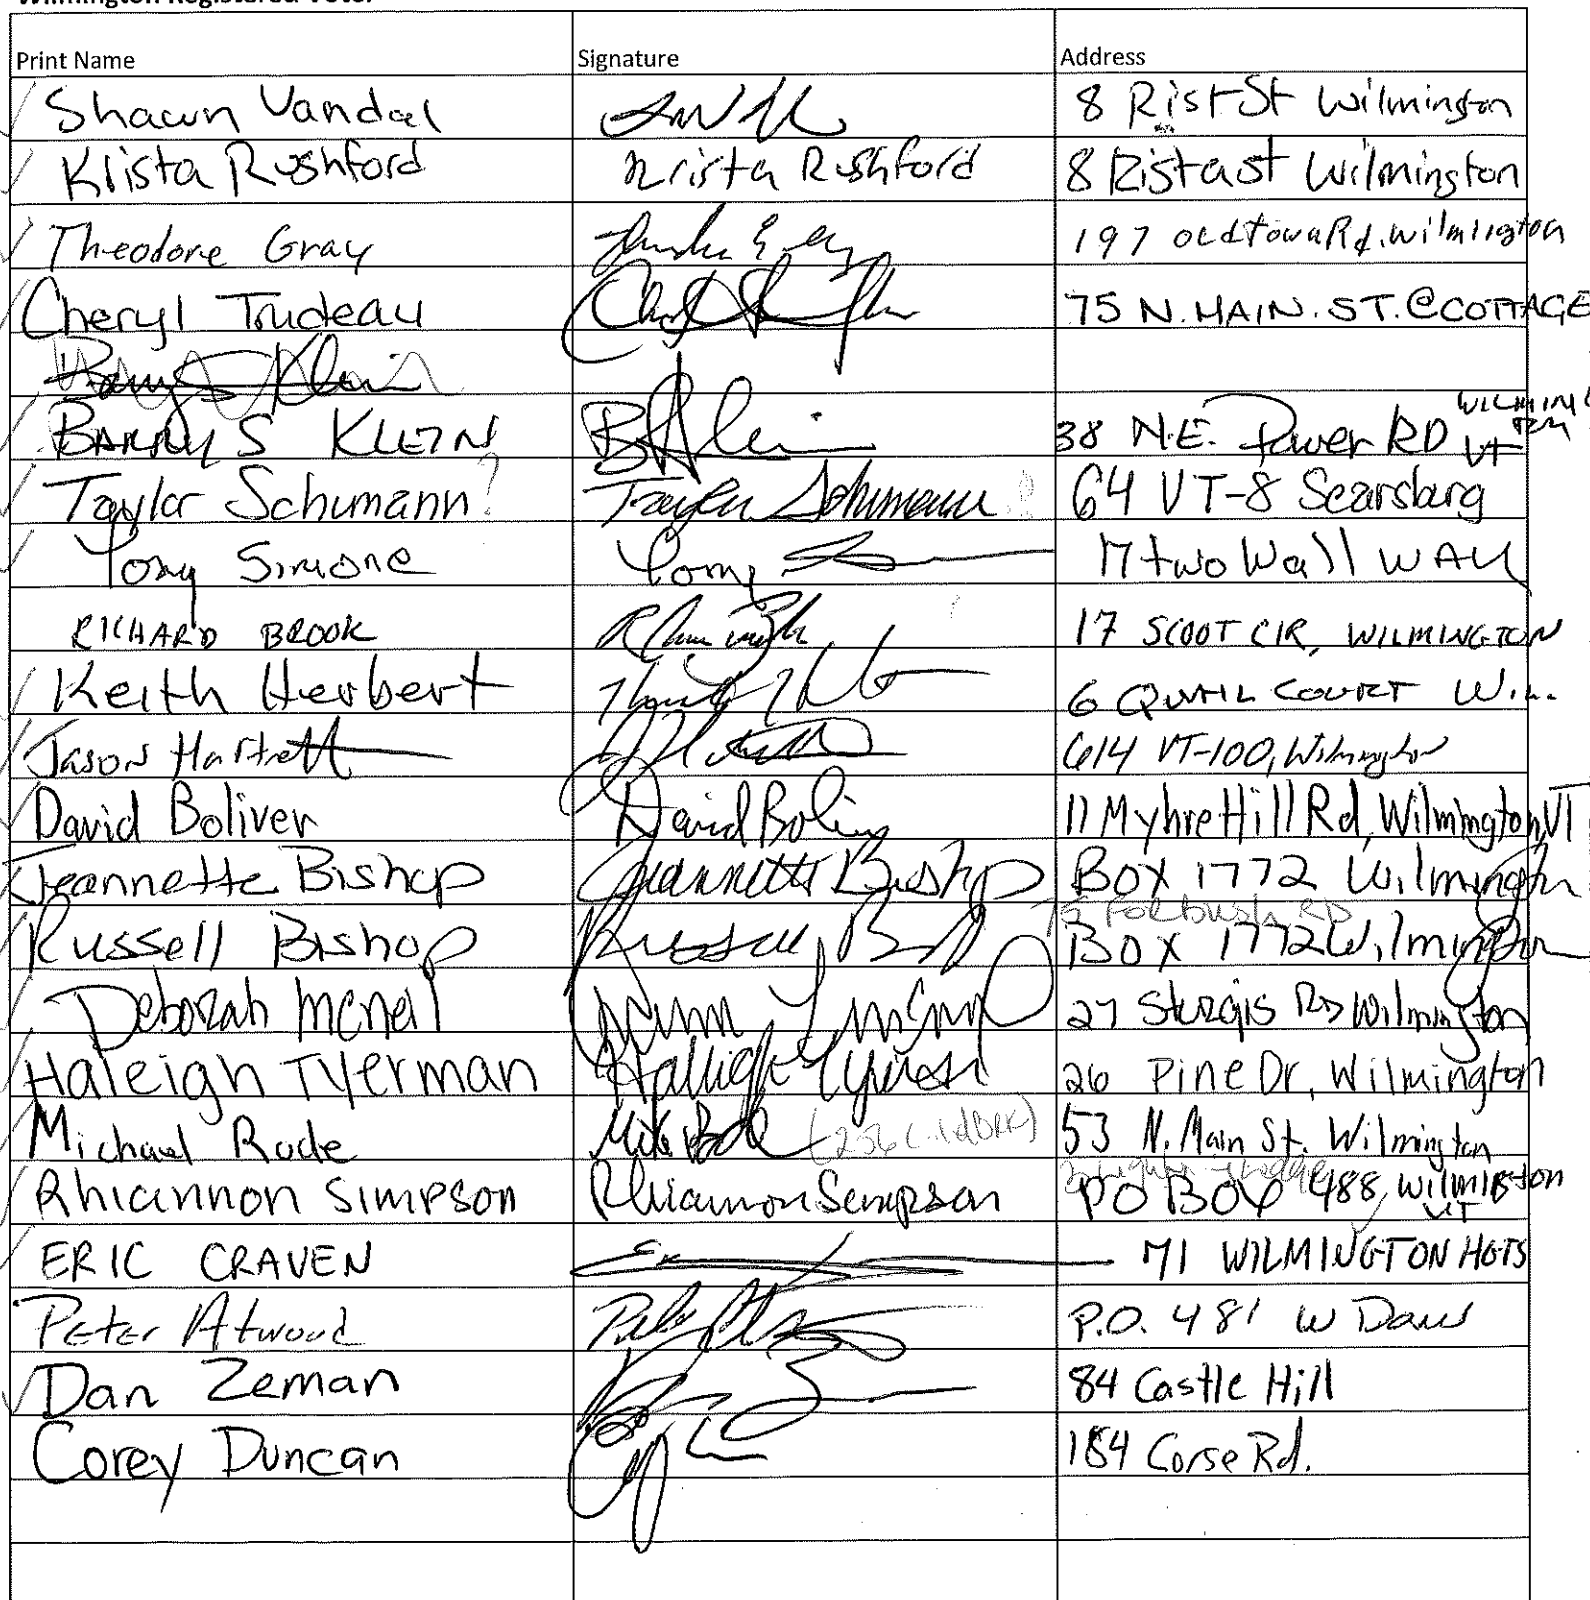 Wilmington Registered Voter
Print Name Signature Address
Shawn Vandal 8 Rist St Wilmington
Krista Rushford Krista Rushford 8 Rist ast Wilmington
Theodore Gray 197 old town Rd. Wilmington
Cheryl Trudeau 75 N. MAIN. ST. @COTTAGE
Barry S Klein
BARRY S KLEIN B Klein 38 N.E. Power RD WILMINGTON VT
Taylor Schumann? Taylor Schumann 64 VT-8 Searsburg
Tony Simone Tony 17 two Wall WAY
RICHARD BROOK 17 SCOOT CIR, WILMINGTON
Keith Herbert 6 QUAIL COURT Wil.
Jason Hartnett 614 VT-100, Wilmington
David Boliver David Boliver 11 Myhre Hill Rd, Wilmington, VT
Jeannette Bishop Jeannette Bishop BOX 1772 Wilmington
Forbush RD
Russell Bishop Russell B BOX 1772 Wilmington
Deborah Mcneil 27 Sturgis RD Wilmington
Haleigh Tyerman 26 Pine Dr, Wilmington
Michael Rode Mike 53 N. Main St. Wilmington
Rhiannon Simpson Rhiannon Simpson PO BOX 488, Wilmington VT
ERIC CRAVEN 71 WILMINGTON HGTS
Peter Atwood P.O. 481 W Dover
Dan Zeman 84 Castle Hill
Corey Duncan 184 Corse Rd.